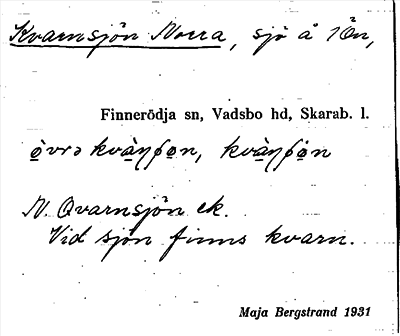 Kvarnsjön Norra, sjö å 1Ön,
Finnerödja sn, Vadsbo hd, Skarab. l.
övrə
N. Qvarnsjön ek.
Vid sjön finns kvarn.
Maja Bergstrand 1931